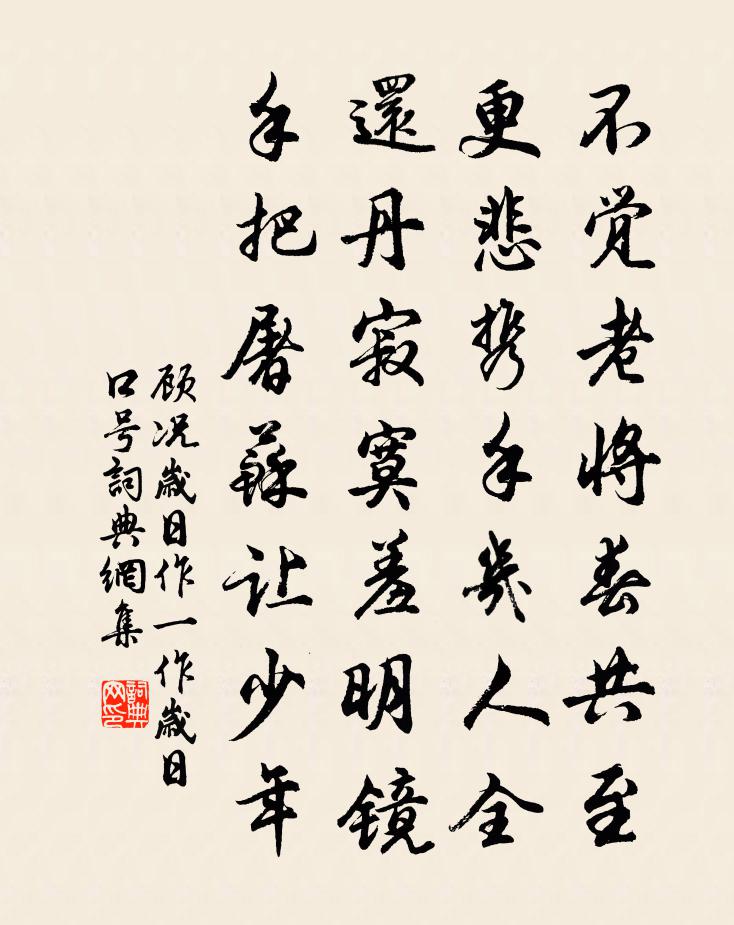 不觉老将春共至
更悲携手几人全
還丹寂寞羞明镜
手把屠蘇让少年
顾况歲日作一作歲日
口号詞典網集
詞典
网印